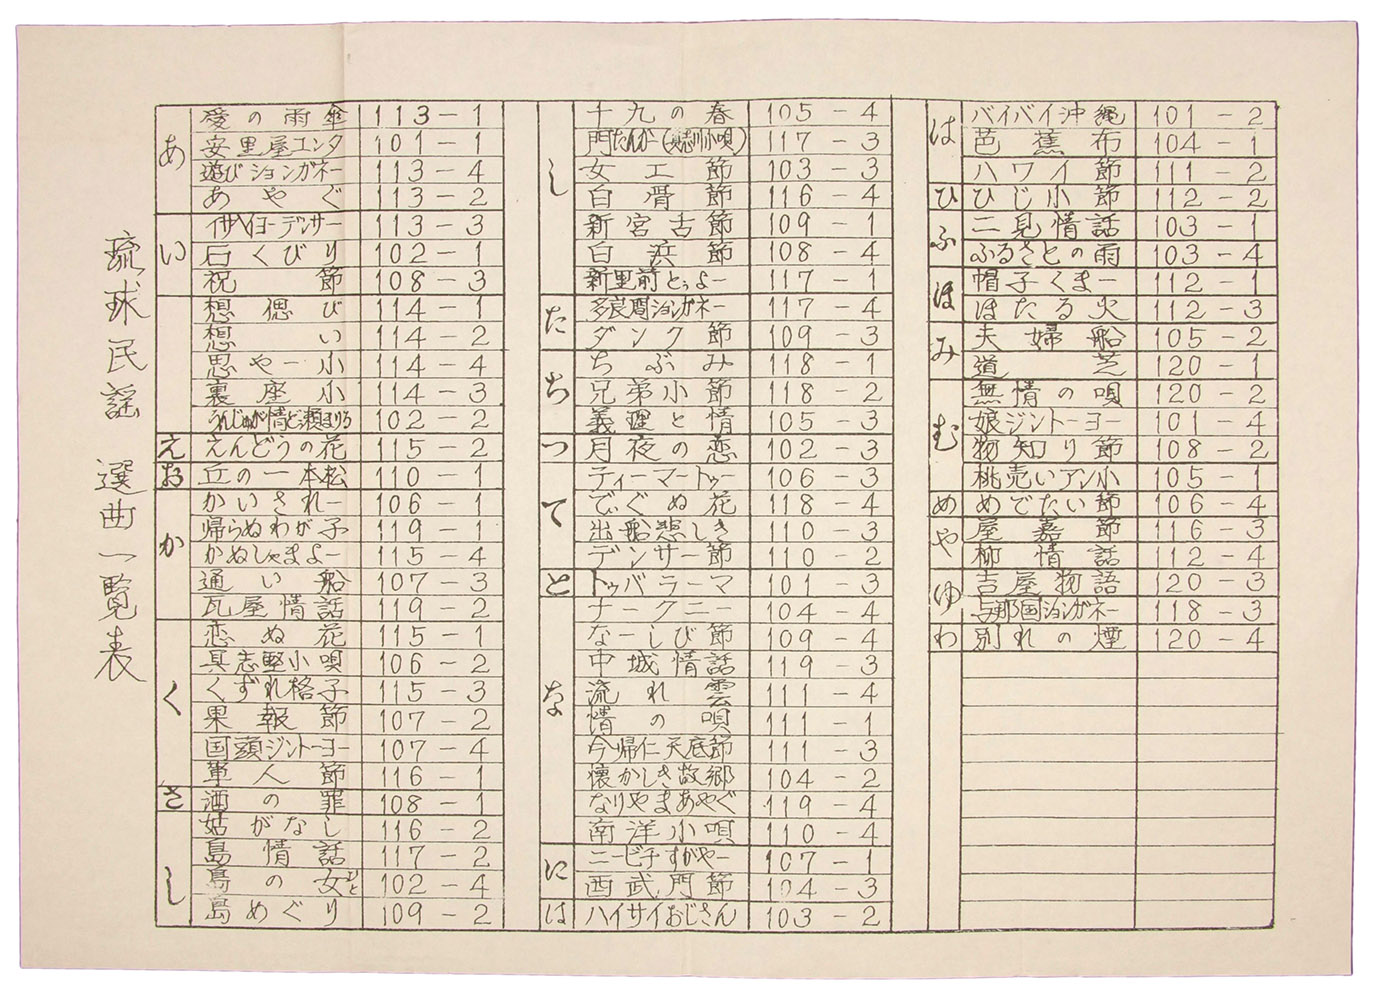 琉球民謡 選曲一覧表
あ
愛の雨傘 113-1
安里屋ユンタ 101-1
遊びションガネー 113-4
あやぐ 113-2
い
伊計ヨーデンサー 113-3
石くびり 102-1
祝節 108-3
想偲び 114-1
想い 114-2
思やー小 114-4
裏座小 114-3
うんじゅが情ど頼まりる 102-2
え
えんどうの花 115-2
お
丘の一本松 110-1
か
かいされー 106-1
帰らぬわが子 119-1
かぬしゃまよー 115-4
通い船 107-3
瓦屋情話 119-2
く
恋ぬ花 115-1
具志堅小唄 106-2
くずれ格子 115-3
果報節 107-2
国頭ジントーヨー 107-4
軍人節 116-1
さ
酒の罪 108-1
し
姑がなし 116-2
島情話 117-2
島の女 ひと 102-4
島めぐり 109-2
し
十九の春 105-4
門たんかー(具志川小唄) 117-3
女工節 103-3
白骨節 116-4
新宮古節 109-1
白浜節 108-4
新里前とぅよー 117-1
た
多良間ションガネー 117-4
ダンク節 109-3
ち
ちぶみ 118-1
兄弟小節 118-2
義理と情 105-3
つ
月夜の恋 102-3
て
ティーマートゥー 106-3
でぃぐぬ花 118-4
出船悲しき 110-3
デンサー節 110-2
と
トゥバラーマ 101-3
な
ナークニー 104-4
なーしび節 109-4
中城情話 119-3
流れ雲 111-4
情の唄 111-1
今帰仁天底節 111-3
懐かしき故郷 104-2
なりやまあやぐ 119-4
南洋小唄 110-4
に
ニービチすがやー 107-1
西武門節 104-3
は
ハイサイおじさん 103-2
は
バイバイ沖縄 101-2
芭蕉布 104-1
ハワイ節 111-2
ひ
ひじ小節 112-2
ふ
二見情話 103-1
ふるさとの雨 103-4
ほ
帽子くまー 112-1
ほたる火 112-3
み
夫婦船 105-2
道芝 120-1
む
無情の唄 120-2
娘ジントーヨー 101-4
物知り節 108-2
桃売いアン小 105-1
め
めでたい節 106-4
や
屋嘉節 116-3
柳情話 112-4
ゆ
吉屋物語 120-3
与那国ションガネー 118-3
わ
別れの煙 120-4